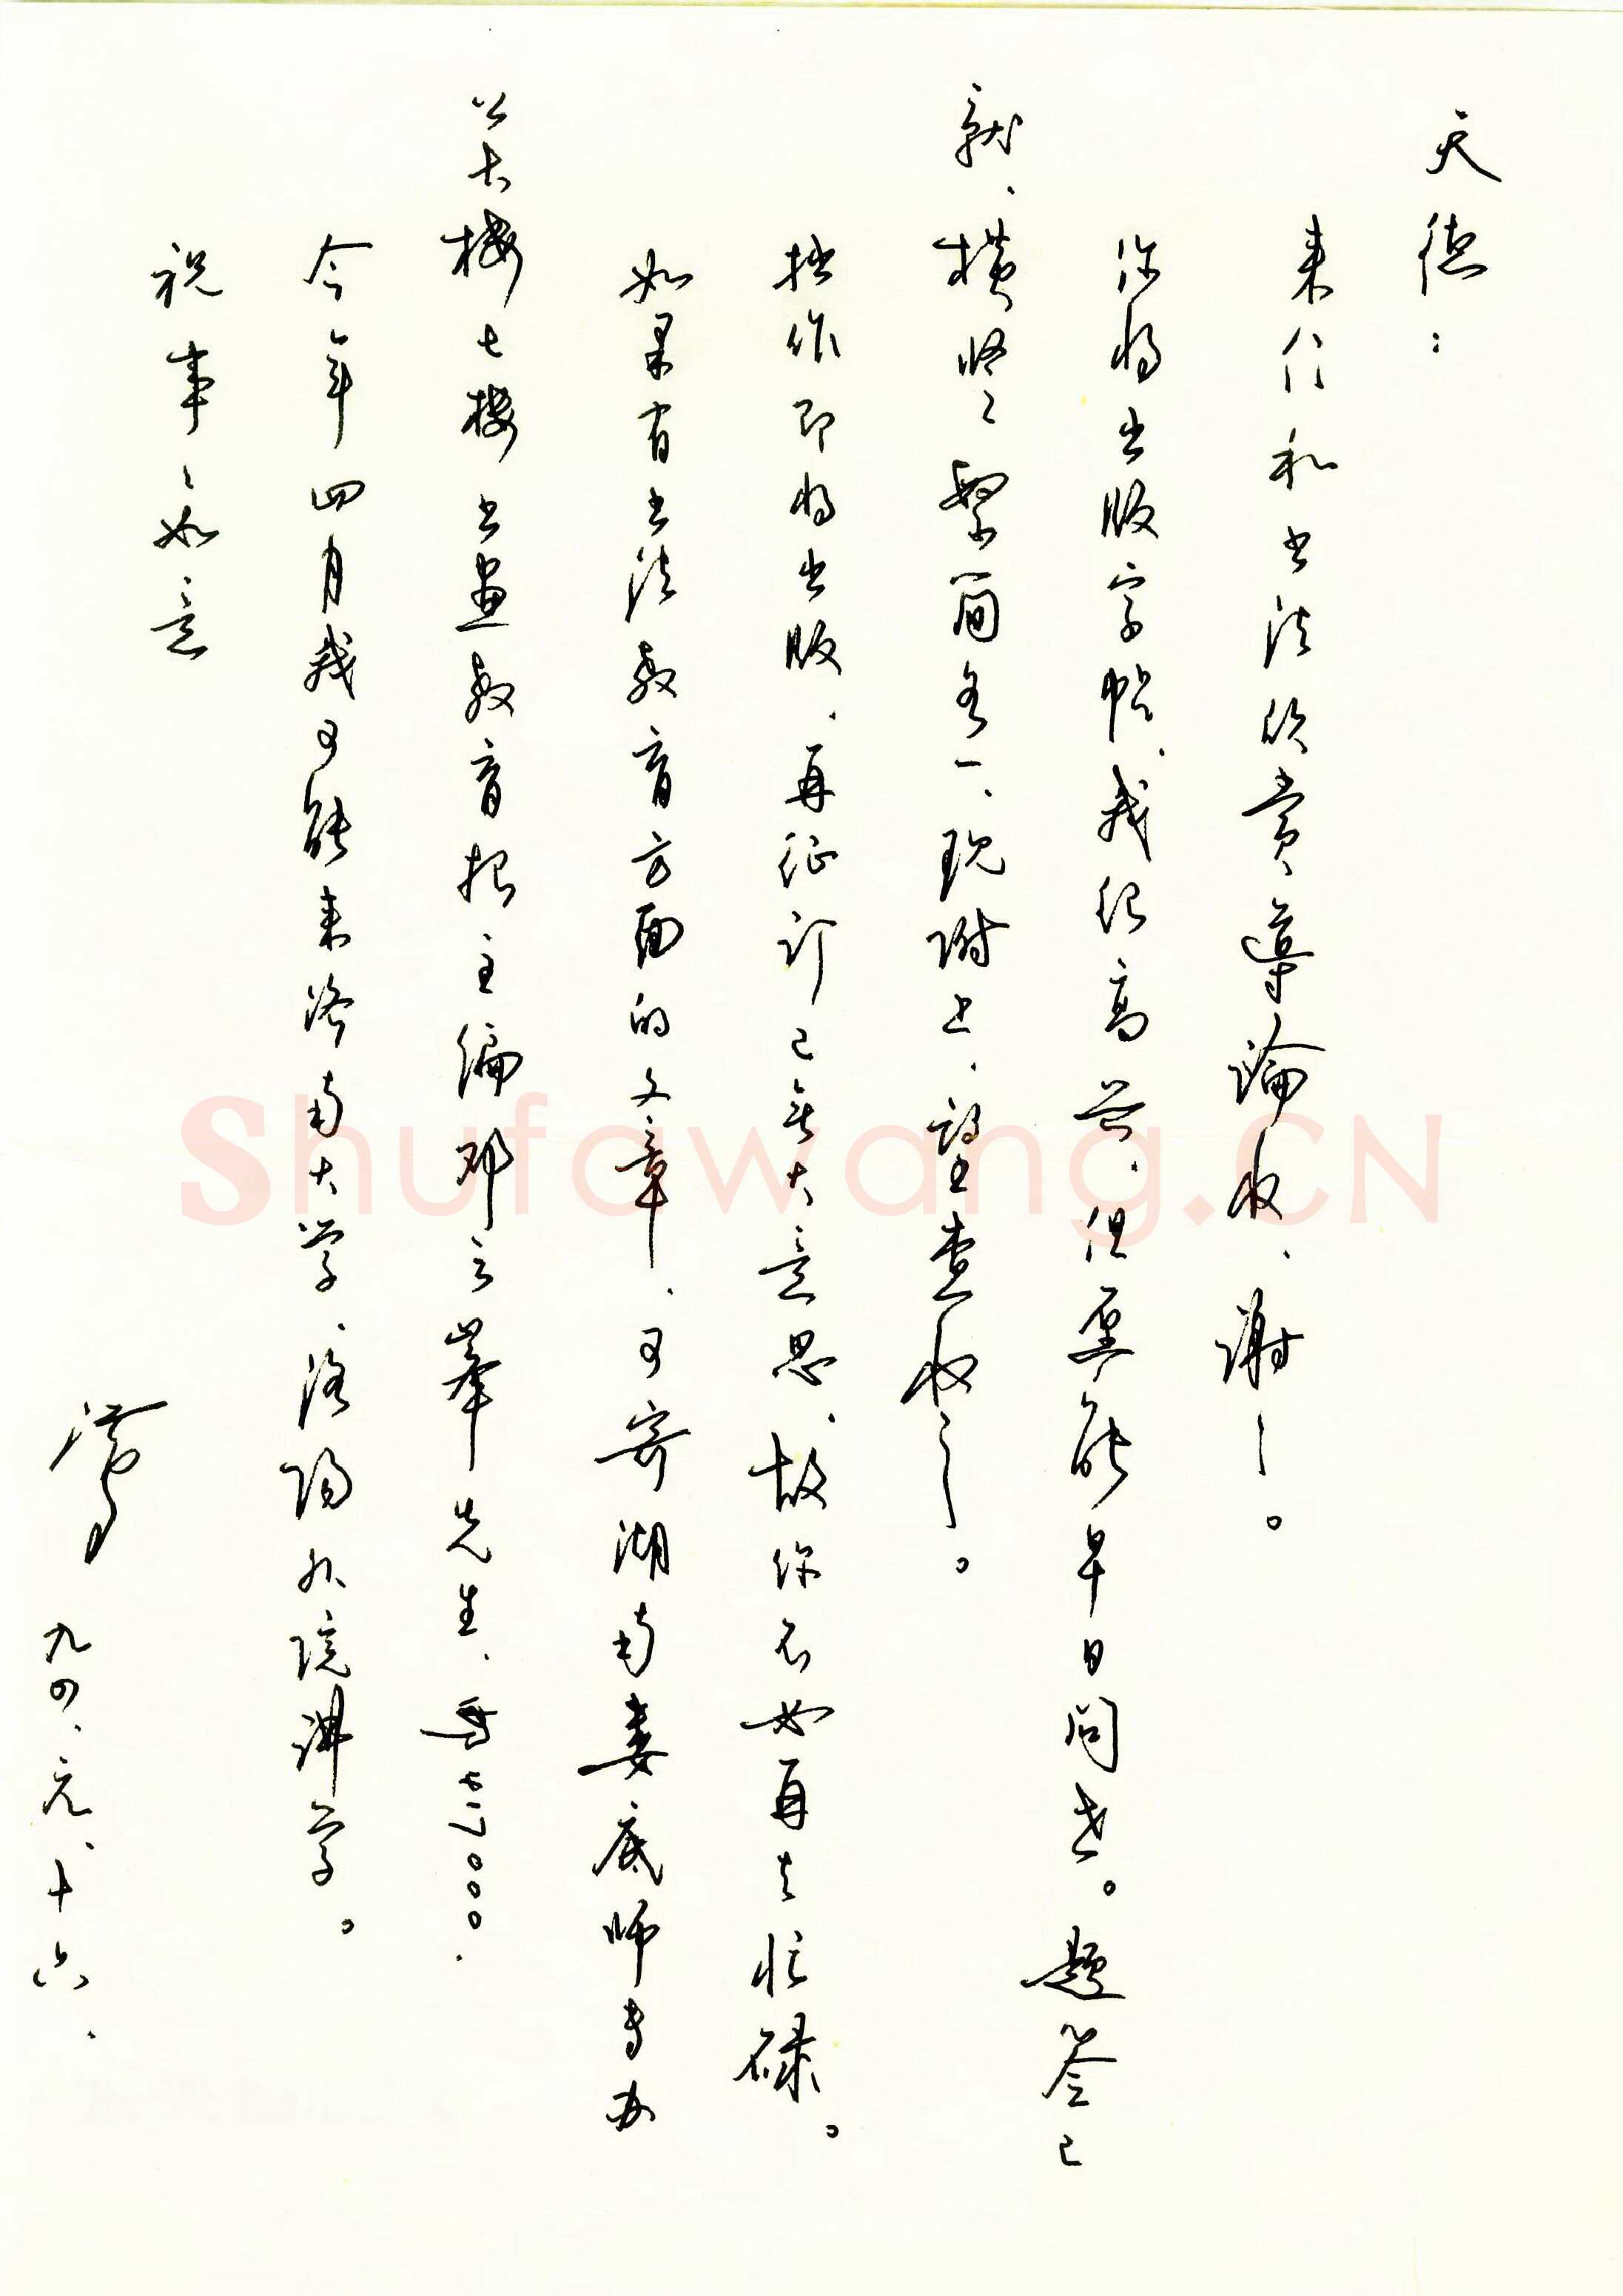 天德：
来信和书法欣赏导论收、谢谢。
你将出版字帖、我很高兴、但愿能早日问世。题签已
就、横竖、繁简各一、现附上、望查收之。
拙作即将出版、再征订已无大意思、故你不必再去忙碌。
如果有书法教育方面的文章、可寄湖南娄底师专办
公大楼七楼书画教育报主编邓云峯先生、417000.
今年四月我可能来洛南大学、洛阳外院讲学。
祝事事如意
九四、元、十六、
Shufawang.CN